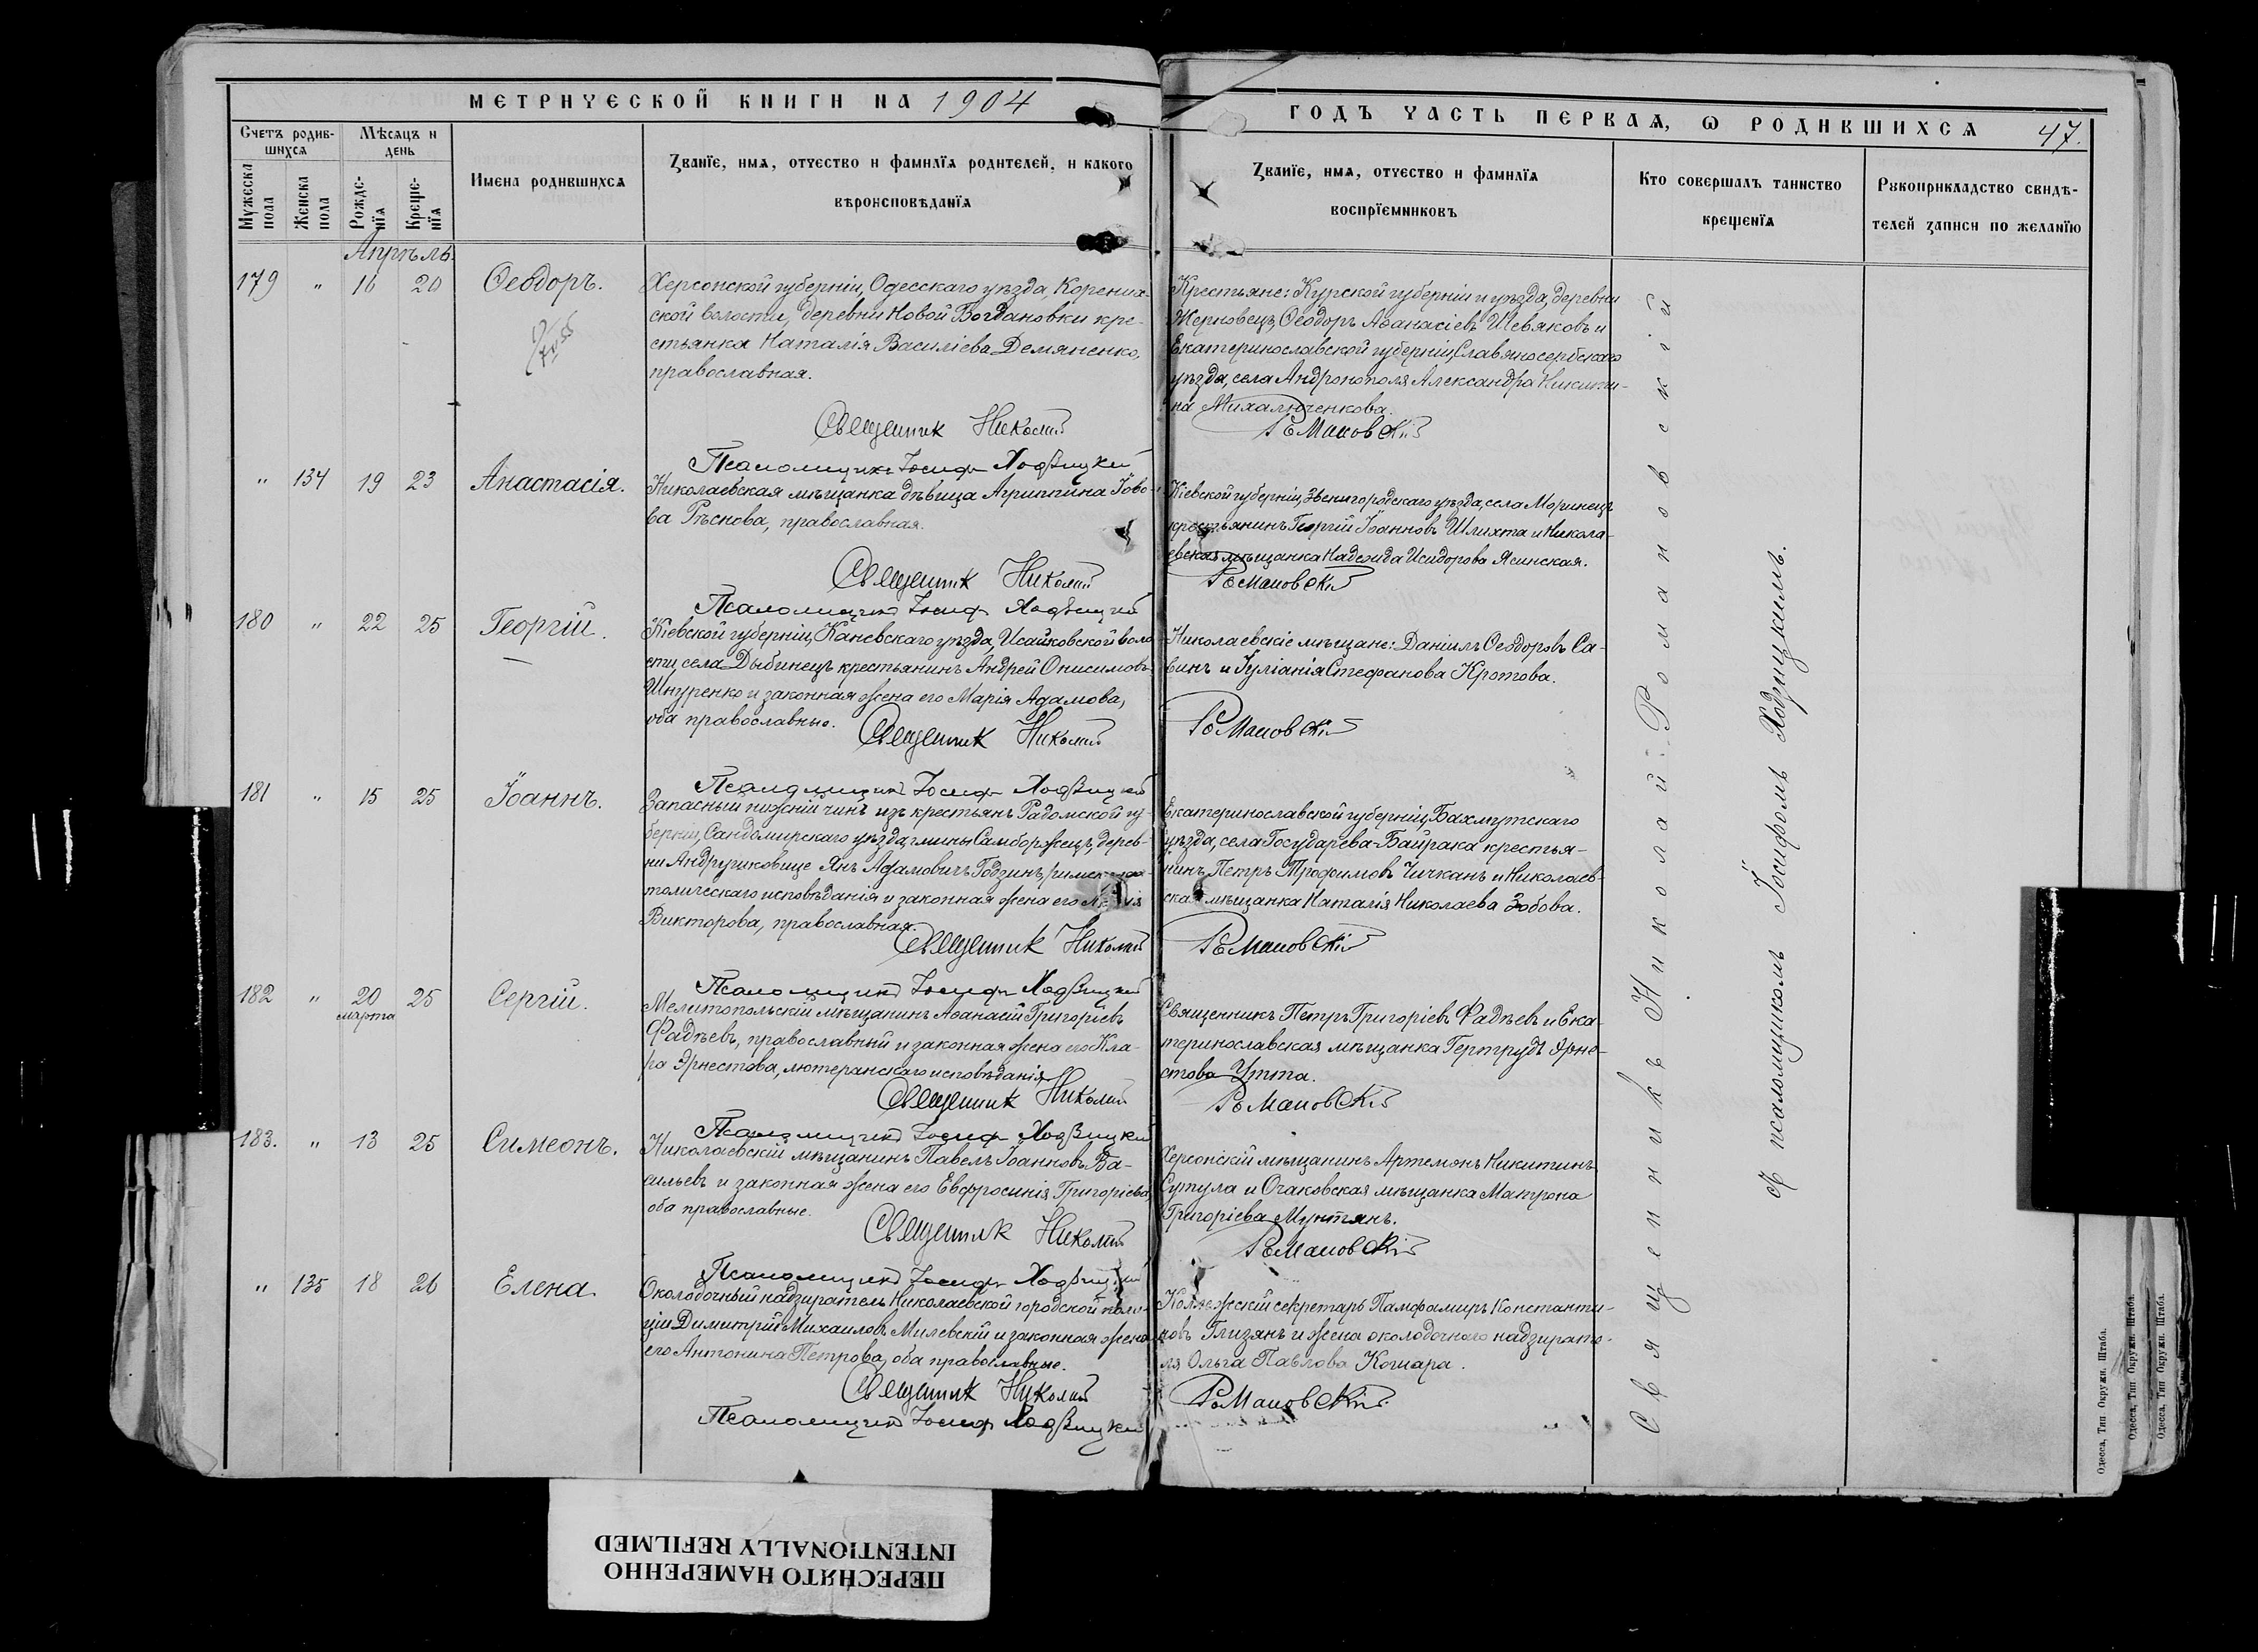 МЕТРИЧЕСКОЙ КНИГИ НА 1904
ГОДЪ ЧАСТЬ ПЕРВАЯ, Ѡ РОДИВШИХСЯ 47.
Счетъ родив-
шихся
Мѣсяцъ и
день
Мужеска
пола
Женска
пола
Рожде-
нїя
Креще-
нїя
Имена родившихся
Званїе, имя, отчество и фамилїя родителей, и какого
вѣроисповѣданїя
Званїе, имя, отчество и фамилїя
воспрїемниковъ
Кто совершалъ таинство
крещенїя
Рукоприкладство свидѣ-
телей записи по желанїю
Апрѣль.
179 " 16 20 Ѳеодоръ.
Херсонской губерніи, Одесскаго уѣзда, Корених-
ской волости, деревни Новой Богдановки кре-
стьянка Наталія Василіева Демяненко,
православная.
Священник Николай
Псаломщикъ Іосифъ Ходзицкий
Крестьяне: Курской губерніи и уѣзда, деревни
Жерновецъ, Ѳеодоръ Аѳанасіевъ Шевяковъ и
Екатеринославской губерніи, Славяносербскаго
уѣзда, села Андронополя Александра Никити-
на Михальченкова.
Романовскій
" 134 19 23 Анастасія.
Николаевская мѣщанка дѣвица Агриппина Іово-
ва Рѣснова, православная.
Священник Николай
Псаломщикъ Іосифъ Ходзицкий
Кіевской губерніи, Звенигородскаго уѣзда, села Моринецъ
крестьянинъ Георгій Іоанновъ Шлихта и Никола-
евская мѣщанка Надежда Исидорова Ясинская.
Романовскій
180 " 22 25 Георгій.
Кіевской губерніи, Каневскаго уѣзда, Исайковской воло
сти, села Дыбинецъ крестьянинъ Андрей Онисимовъ
Шнуренко и законная жена его Марія Адамова,
оба православные.
Священник Николай
Псаломщикъ Іосифъ Ходзицкий
Николаевскіе мѣщане: Даніилъ Ѳеодоровъ Са-
винъ и Іуліанія Стефанова Кротова.
Романовскій
181 " 15 25 Іоаннъ.
Запасный нижній чинъ изъ крестьянъ Радомской гу-
берніи, Сандомирскаго уѣзда, гмины Самборжецъ, дерев-
ни Андрушковице Янъ Адамовичъ Годзинъ, римско-ка-
толическаго исповѣданія и законная жена его
Викторова, православная.
Священник Николай
Псаломщикъ Іосифъ Ходзицкий
Екатеринославской губерніи, Бахмутскаго
уѣзда, села Государева-Байрака крестья-
нинъ Петръ Трофимовъ Чичканъ и Николаев-
ская мѣщанка Наталія Николаева Зобова.
Романовскій
182 " 20 марта 25 Сергій.
Мелитопольскій мѣщанинъ Аѳанасій Григоріевъ
Фадѣевъ, православный и законная жена его Кла-
ра Эрнестова, лютеранскаго исповѣданія.
Священник Николай
Псаломщикъ Іосифъ Ходзицкий
Священникъ Петръ Григоріевъ Фадѣевъ и Ека-
теринославская мѣщанка Гертрудъ Эрне-
стова Утта.
Романовскій
183. " 13 25 Симеонъ.
Николаевскій мѣщанинъ Павелъ Іоанновъ Ва-
сильевъ и законная жена его Евфросинія Григоріева,
оба православные.
Священник Николай
Псаломщикъ Іосифъ Ходзицкий
Херсонскій мѣщанинъ Артемонъ Никитинъ
Сутула и Очаковская мѣщанка Матрона
Григоріева Мунтянъ.
Романовскій
" 135 18 26 Елена.
Околодочный надзиратель Николаевской городской поли-
ціи Димитрій Михаиловъ Милевскій и законная жена
его Антонина Петрова, оба православные.
Священник Николай
Псаломщикъ Іосифъ Ходзицкий
Коллежскій секретарь Памфамиръ Константи-
новъ Глизянъ и жена околодочнаго надзирате-
ля Ольга Павлова Кошара.
Романовскій
Священникъ Николай Романовскій
съ псаломщикомъ Іосифомъ Ходзицкимъ.
Одесса, Тип. Окружн. Штаба.
Одесса, Тип. Окружн. Штаба.
Одесса, Тип. Окружн. Штаба.
ПЕРЕСНЯТО НАМЕРЕННО
INTENTIONALLY REFILMED